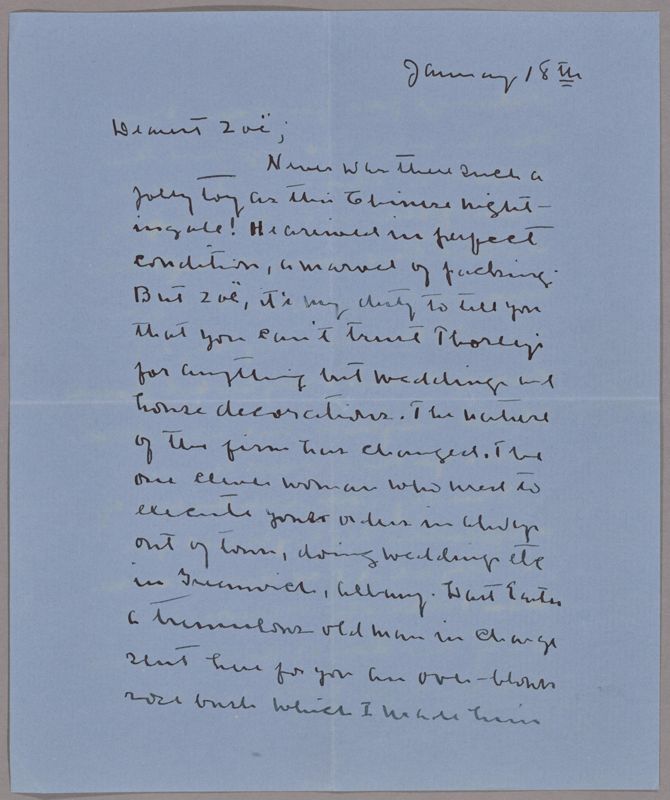 January 18th
Dearest Zoë;
Never was there such a
jolly toy as this Chinese night-
ingale! He arrived in perfect
condition, a marvel of packing.
But Zoë, it's my duty to tell you
that you can't trust Thorley's
for anything but weddings and
house decorations. The nature
of the firm has changed. The
one clever woman who used to
execute your orders is always
out of town, doing weddings etc
in Greenwich, Albany. Last Easter
a tremulous old man in charge
sent here for you an over-blown
rose bush which I made him